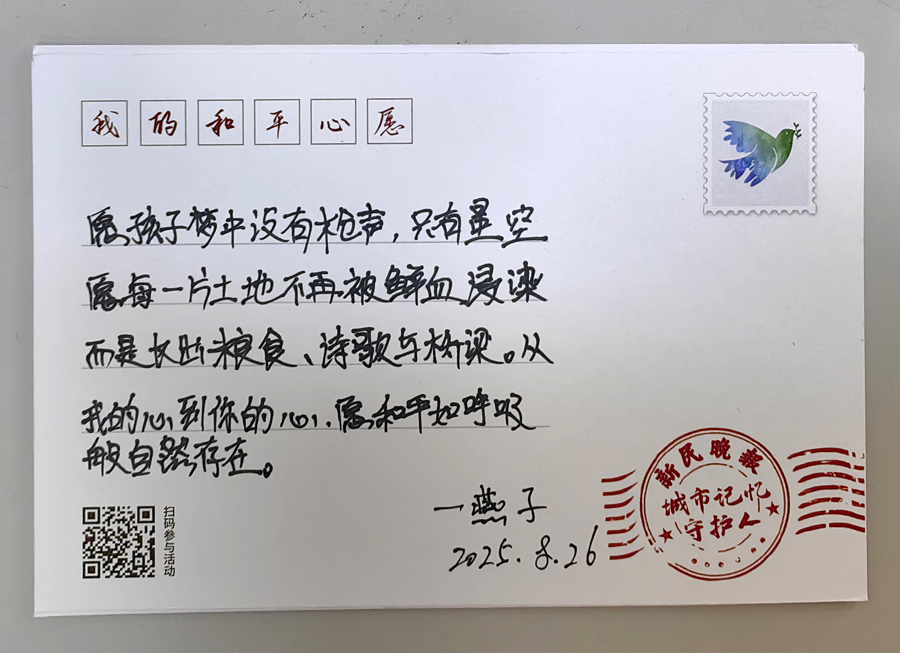 我的和平心愿
愿孩子梦中没有枪声，只有星空
愿每一片土地不再被鲜血浸染
而是长出粮食、诗歌与桥梁。从
我的心到你的心，愿和平如呼吸
般自然存在。
—燕子
2025.8.26
扫码参与活动
新民晚报
城市记忆
守护人